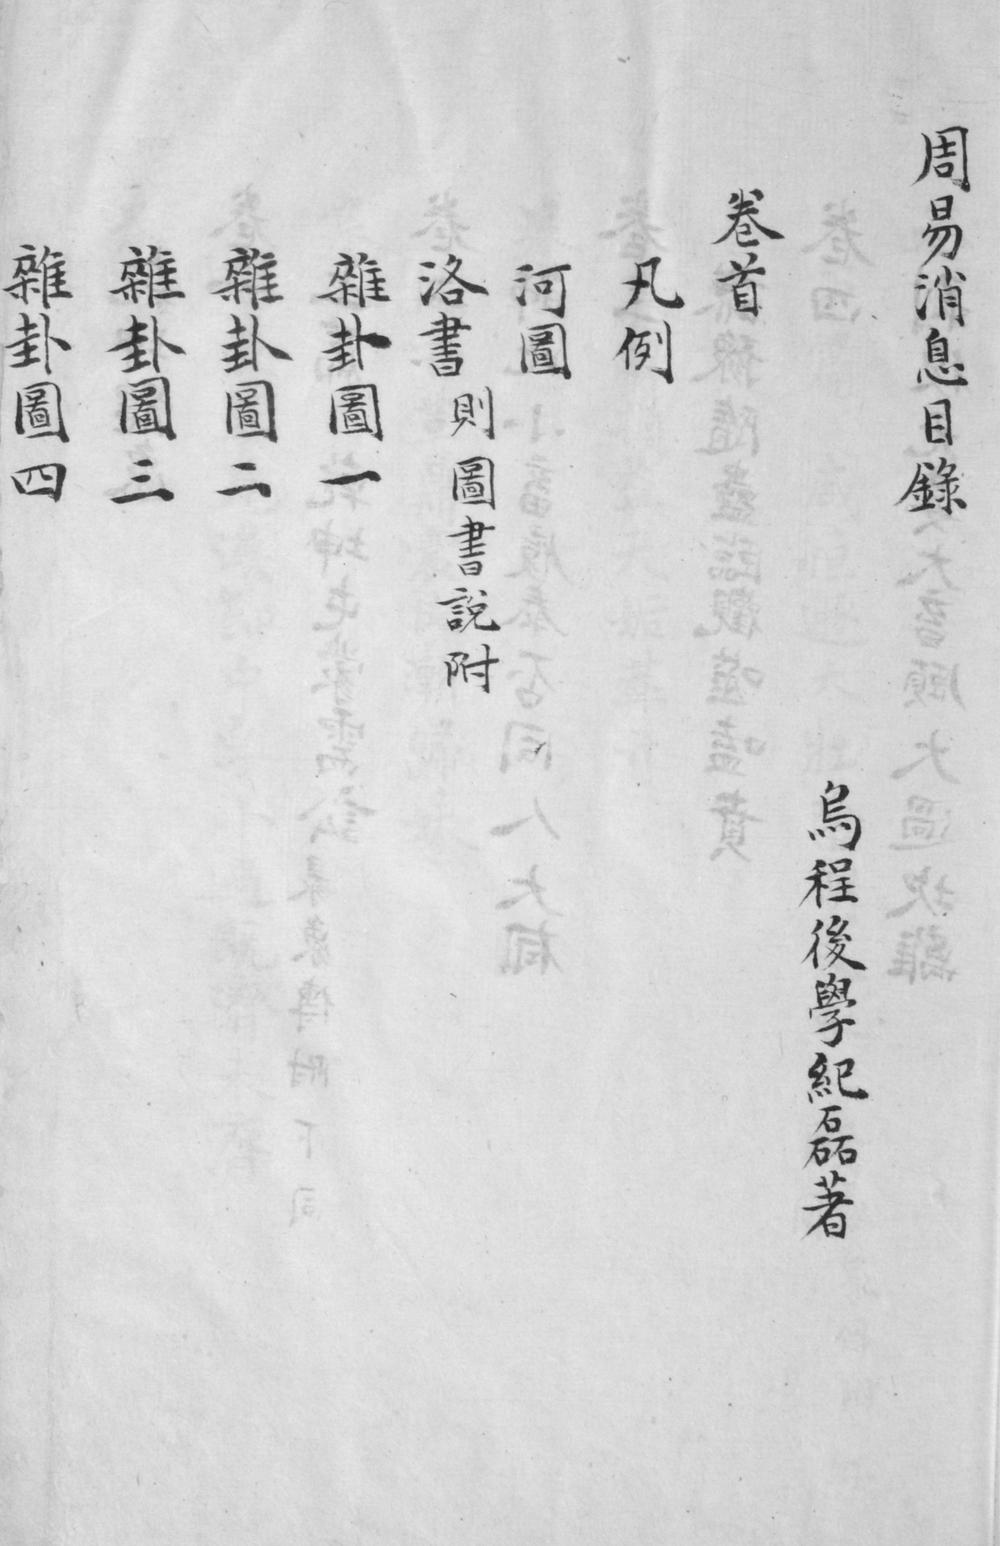 周易消息目錄
烏程後學紀磊著
卷首
凡例
河圖
洛書則圖書說附
雜卦圖一
雜卦圖二
雜卦圖三
雜卦圖四